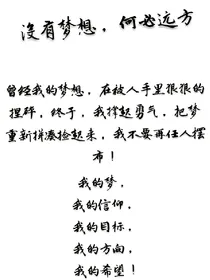 没有梦想，何必远方
曾经我的梦想，在被人手里狠狠的
捏碎，终于，我撑起勇气，把梦
重新拼凑捡起来，我不要再任人摆
布！
我的梦，
我的信仰，
我的目标，
我的方向，
我的希望！